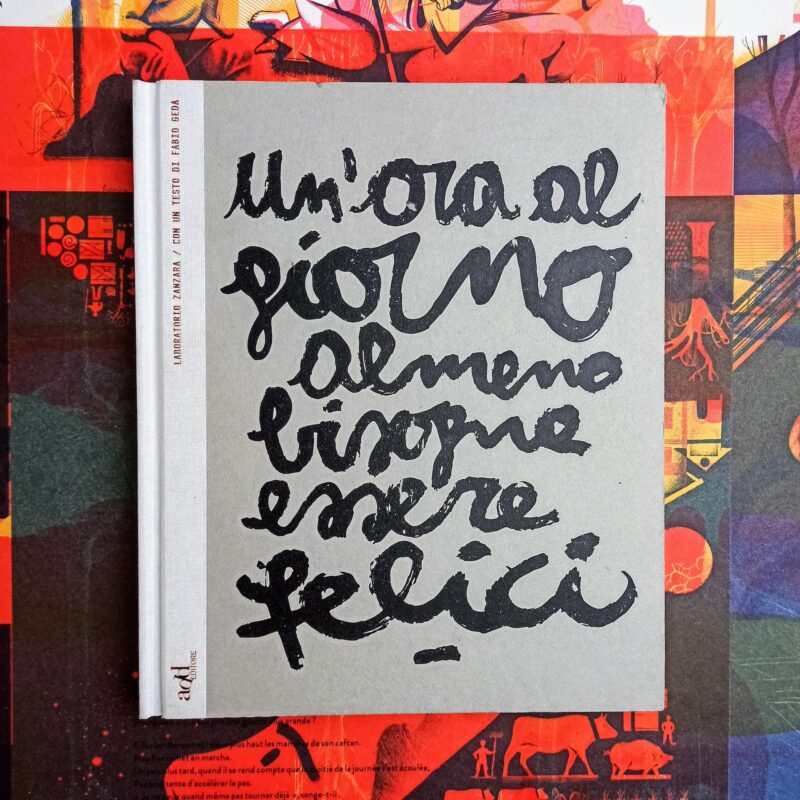 LABORATORIO ZANZARA / CON UN TESTO DI FABIO GEDA
Un'ora al
giorno
almeno
bisogna
essere
felici
add
EDITORE
plus grande ?
plus haut les manches de son caftan.
remet en marche.
plus tard, quand il se rend compte que la moitié de la journée s'est écoulée,
tente d'accélérer le pas.
quand même pas tourner déjà », songe-t-il.